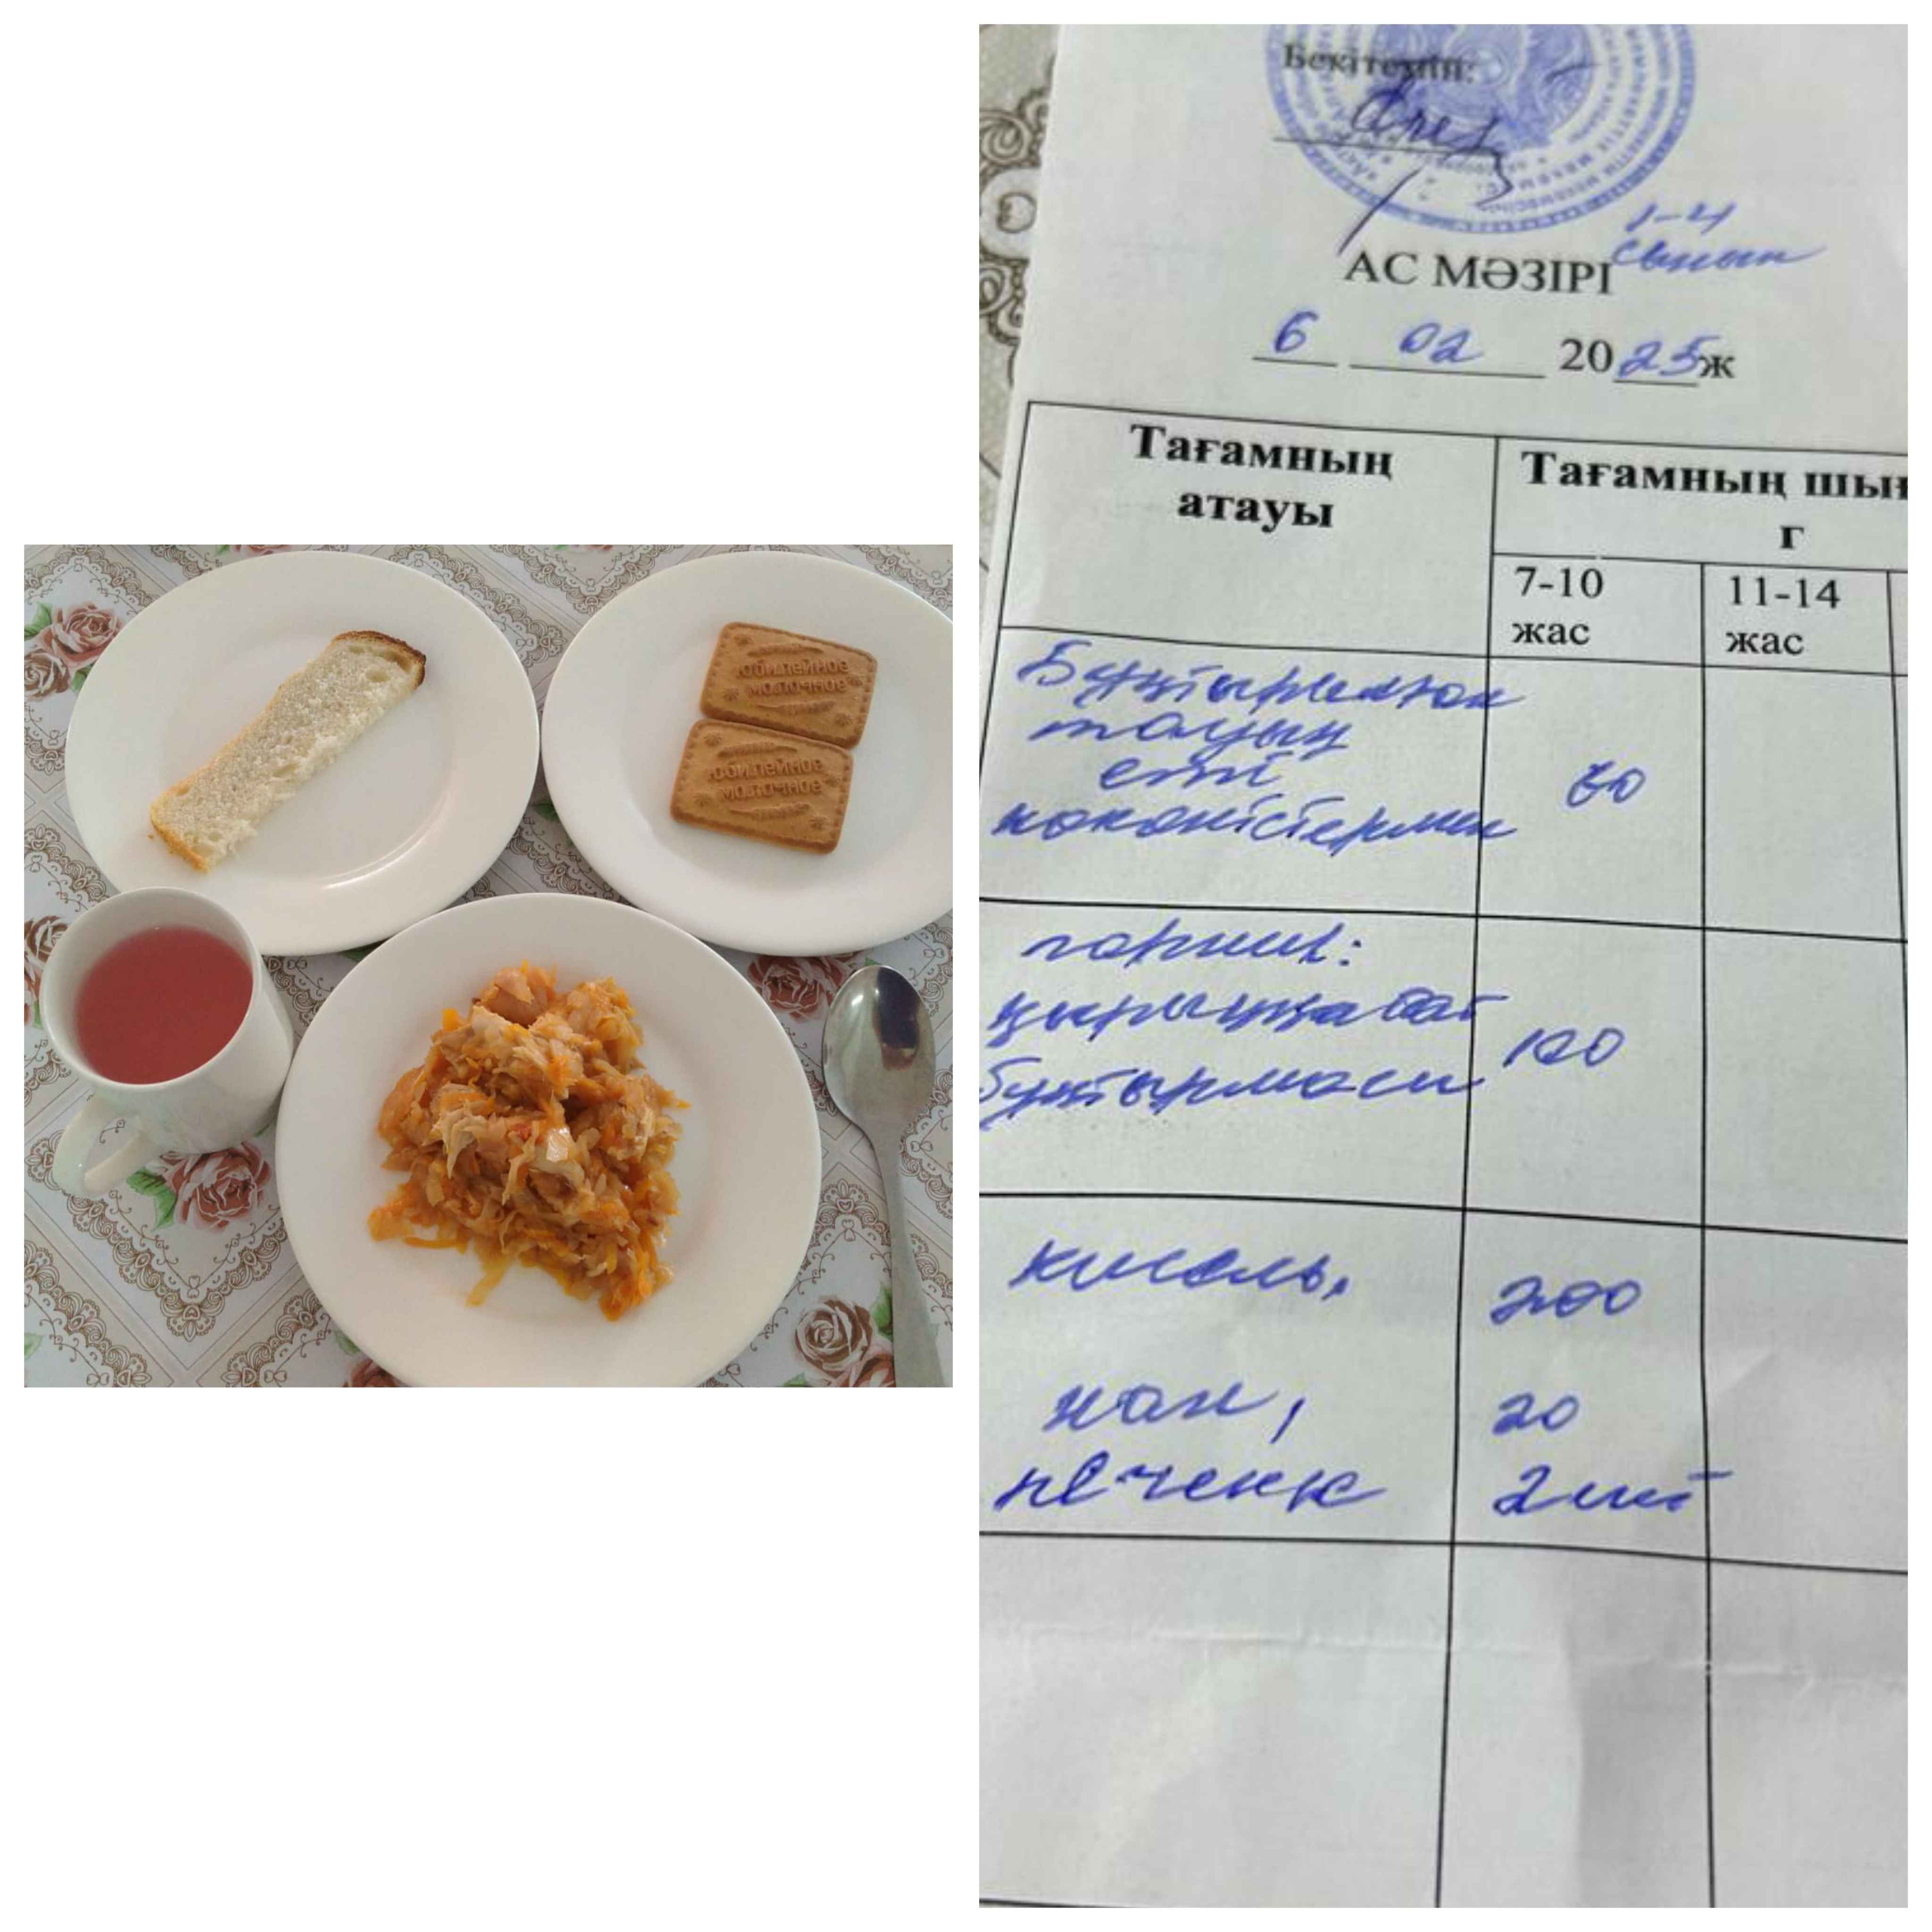 Юбилейное
молочное
Юбилейное
молочное
Бекітемін:
1-4
сынып
АС МӘЗІРІ
6 02 2025ж
Тағамның
атауы
Тағамның шы
г
7-10
жас
11-14
жас
Бұқтырылған
тауық
еті
көкөністермен
60
гарнир:
қырыққабат
бұқтырмасы
100
кисель,
200
нан,
20
печенье
2 шт